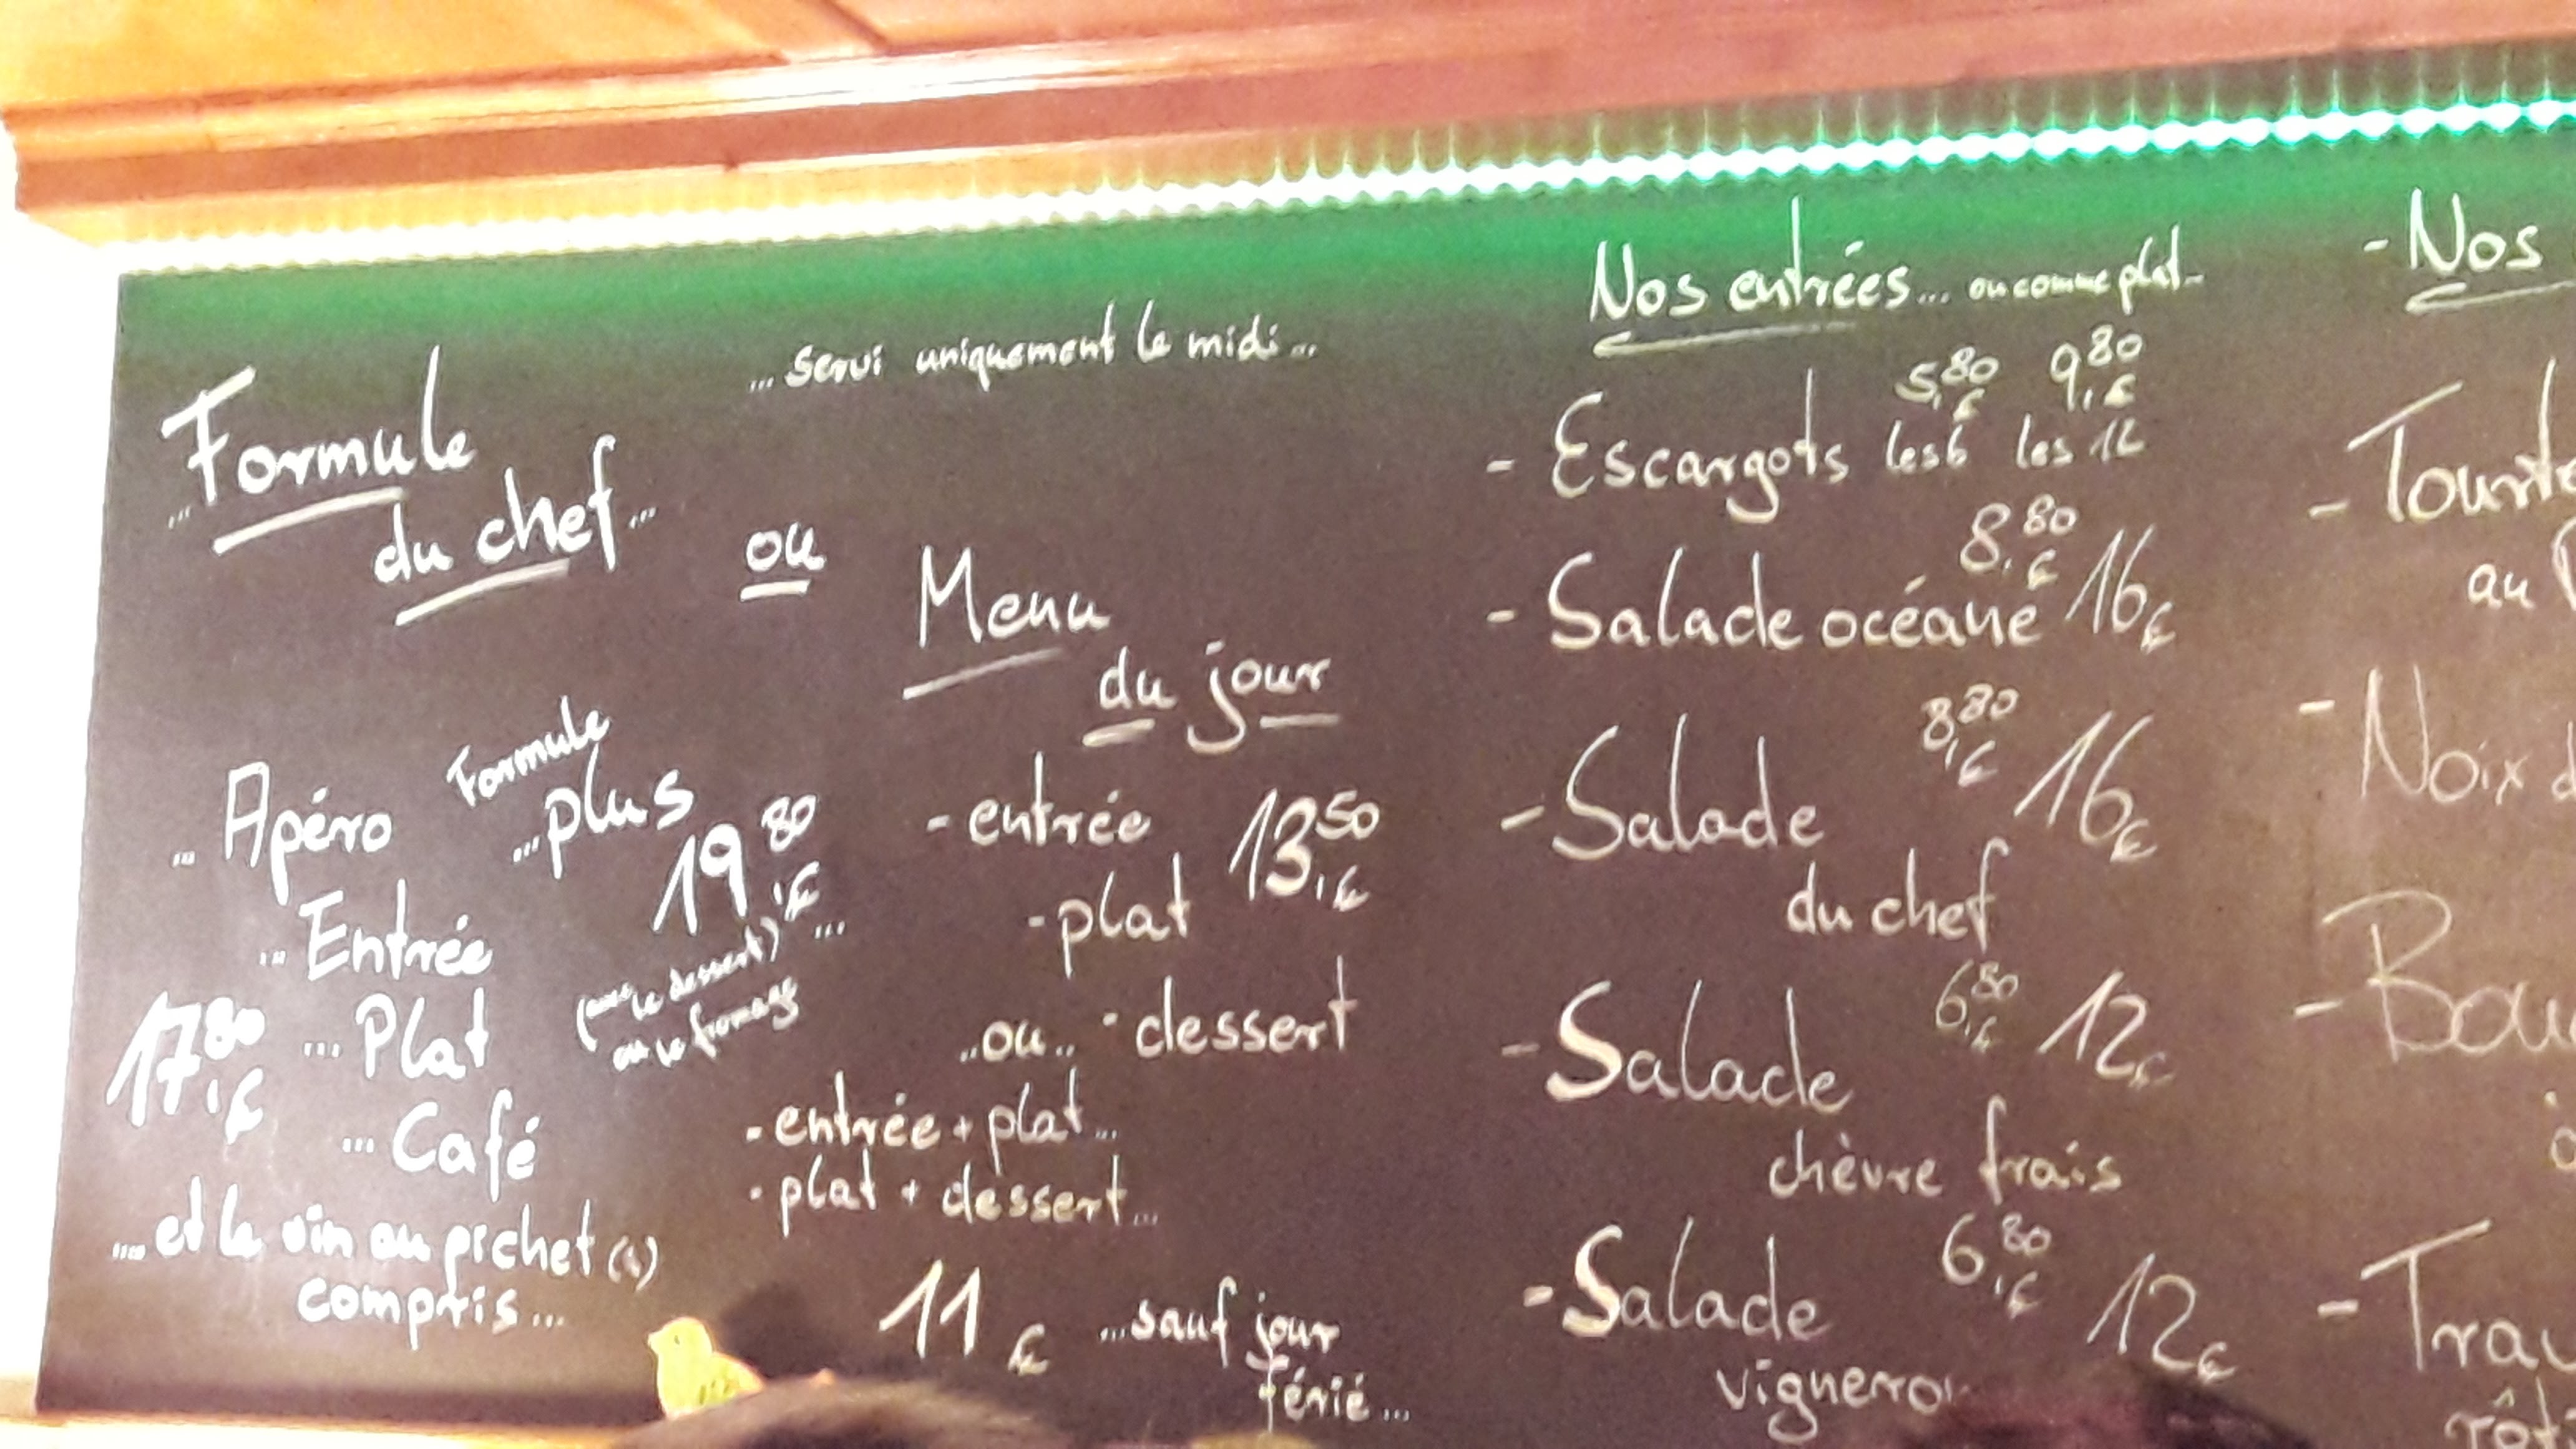 ... servi uniquement le midi ...
... Formule
du chef ...
ou
Menu
du jour
... Apéro
... Entrée
17,80 € ... Plat
... Café
... et le vin au pichet (1)
compris ...
Formule
... plus
19,80 € ...
(avec le dessert)
ou le fromage
- entrée 13,50 €
- plat
.. ou .. - dessert
- entrée + plat ...
- plat + dessert ...
11 € ... sauf jour
férié ...
Nos entrées ... ou comme plat -
5,80 € 9,80 €
- Escargots les 6 les 12
8,80 €
- Salade océane 16 €
8,80 €
- Salade 16 €
du chef
6,80 €
- Salade 12 €
chèvre frais
6,80 €
- Salade 12 €
vigneron
- Nos
- Tourte
au
- Noix d
- Bou
à
- Trav
rôt